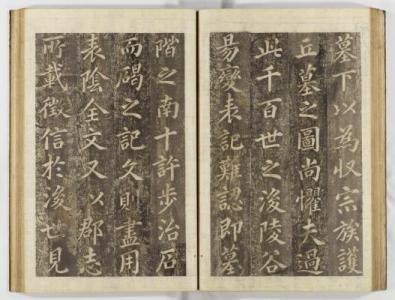 墓下以為収宗族護
丘墓之圖尚懼夫過
此千百世之後陵谷
易變表記難認即墓
階之南十許步治石
而碣之記文則盡用
表陰全文又以郡志
所載徵信於後世見